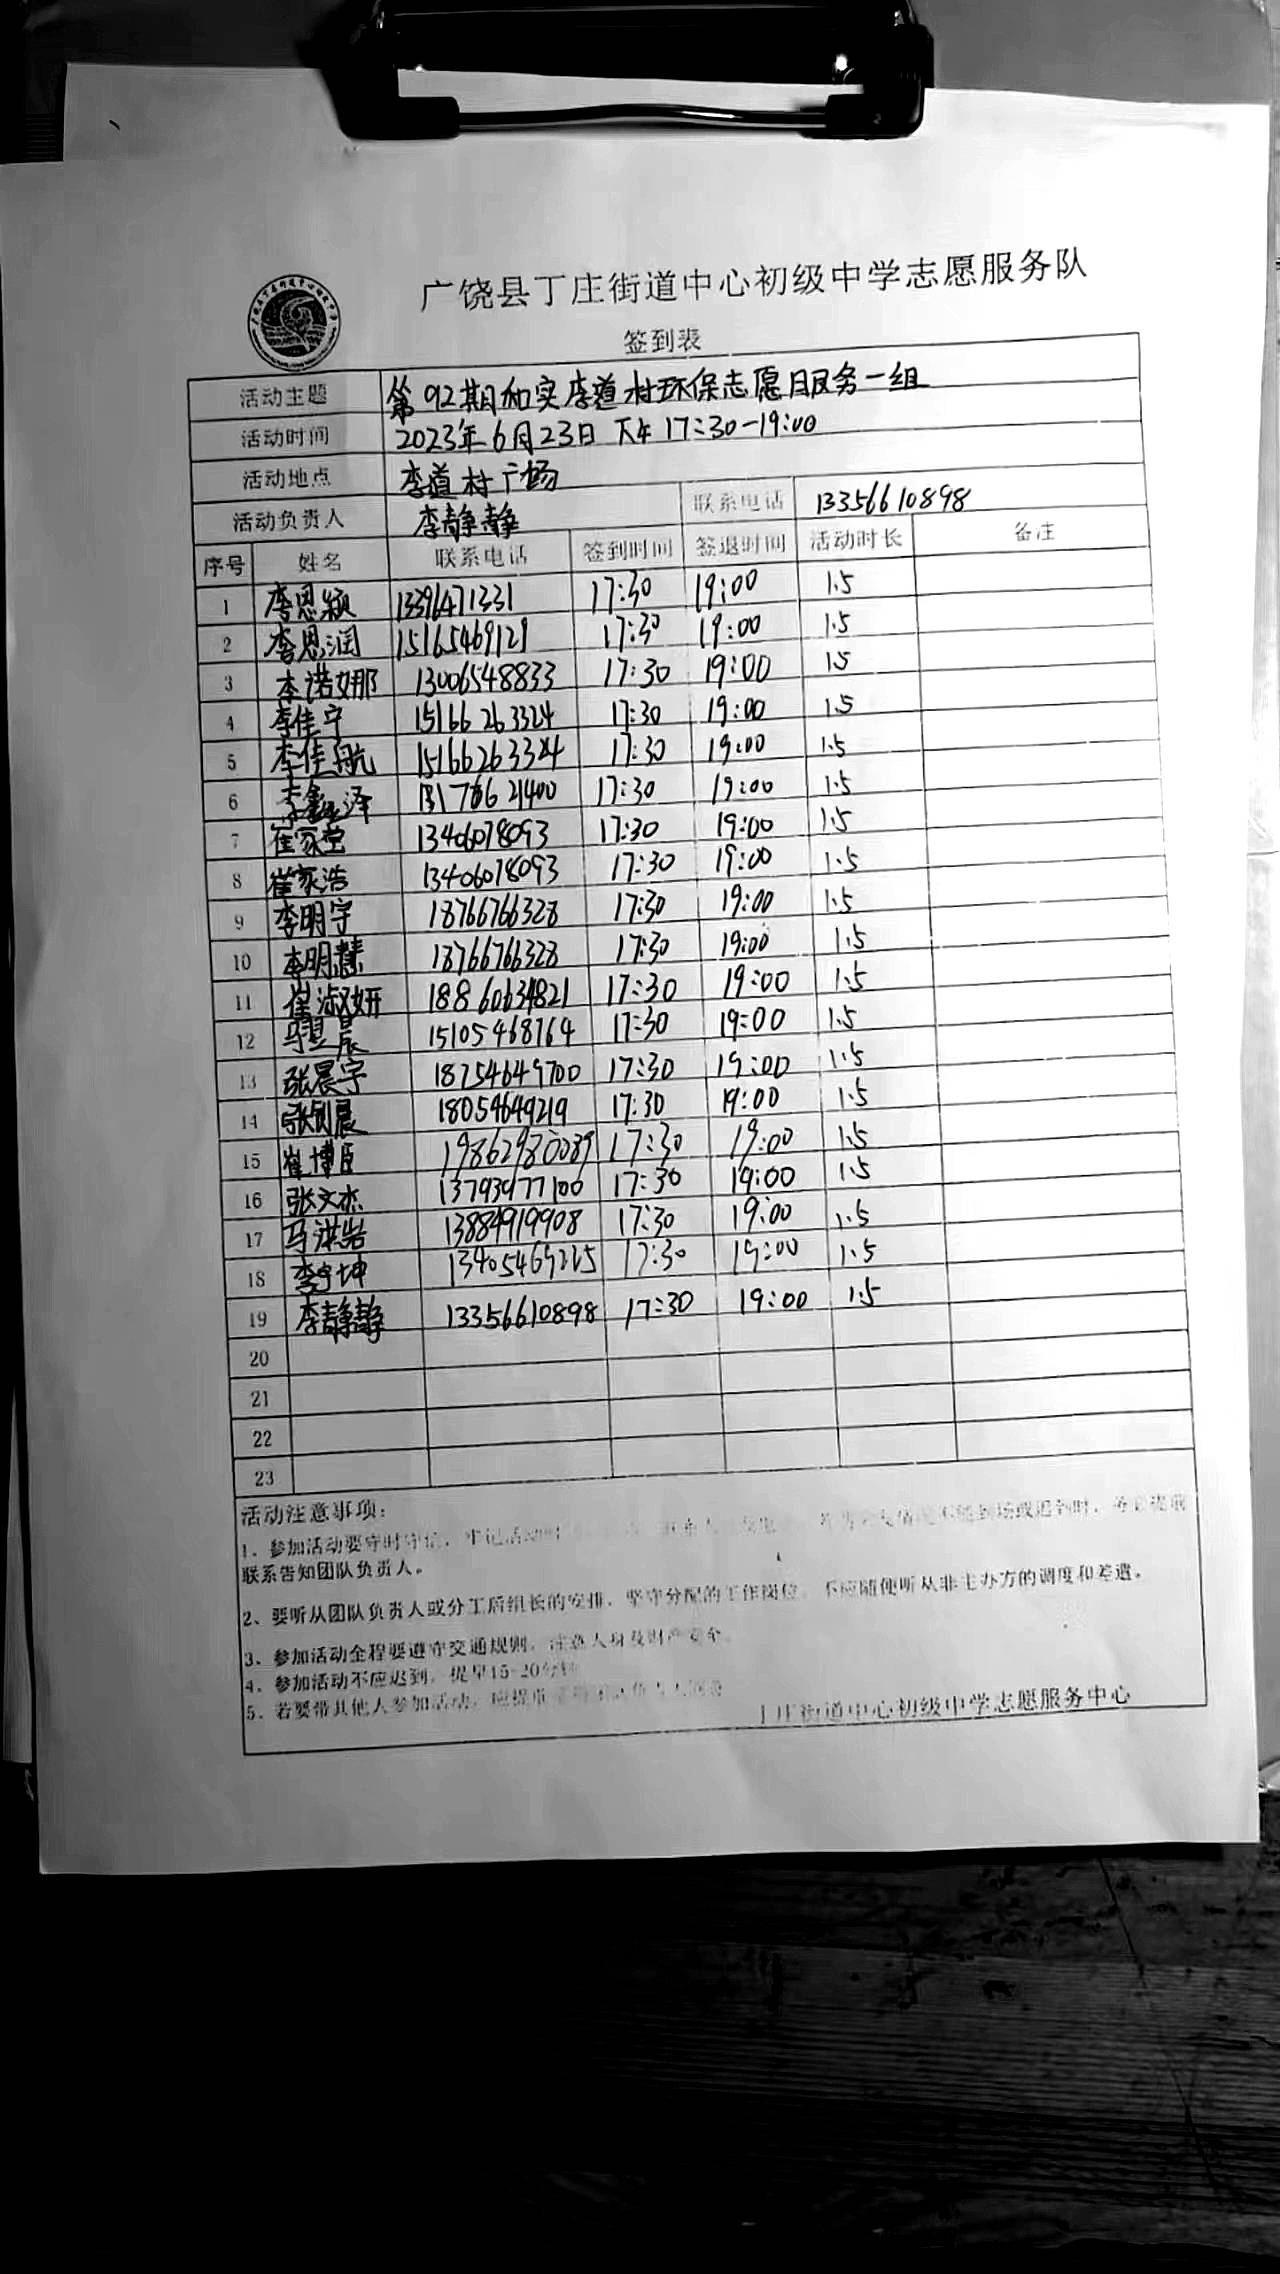 广饶县丁庄街道中心初级中学志愿服务队
签到表
活动主题 第92期和实李道村环保志愿服务一组
活动时间 2023年6月23日 下午17:30-19:00
活动地点 李道村广场
活动负责人 李静静 联系电话 13356610898
序号 姓名 联系电话 签到时间 签退时间 活动时长 备注
1 李恩颖 13396471331 17:30 19:00 1.5
2 李恩润 15165469129 17:30 19:00 1.5
3 李诺娜 13006548833 17:30 19:00 1.5
4 李佳宁 15166263324 17:30 19:00 1.5
5 李佳航 15166263324 17:30 19:00 1.5
6 李鑫泽 17:30 19:00 1.5
7 崔家莹 13406078093 17:30 19:00 1.5
8 崔家浩 13406078093 17:30 19:00 1.5
9 李明宇 18766766328 17:30 19:00 1.5
10 李明慧 18766766328 17:30 19:00 1.5
11 崔淑妍 18860634821 17:30 19:00 1.5
12 马昱晨 15105468764 17:30 19:00 1.5
13 张晨宇 18754649700 17:30 19:00 1.5
14 18054649219 17:30 19:00 1.5
15 崔博臣 19862980089 17:30 19:00 1.5
16 张文杰 13793977100 17:30 19:00 1.5
17 马洪岩 13884919908 17:30 19:00 1.5
18 李宇坤 13405469225 17:30 19:00 1.5
19 李静静 13356610898 17:30 19:00 1.5
20
21
22
23
活动注意事项：
1、参加活动要守时守信，牢记活动时 不能到场或迟到时，务必提前
联系告知团队负责人。
2、要听从团队负责人或分工后组长的安排，坚守分配的工作岗位，不应随便听从非主办方的调度和差遣。
3、参加活动全程要遵守交通规则，注意人身及财产安全。
4、参加活动不应迟到，提早15-20分钟
5、若要带其他人参加活动，应提前
丁庄街道中心初级中学志愿服务中心